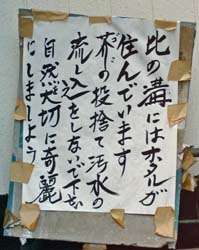 此の溝にはホタルが
住んでいます
芥の投捨て汚水の
流し入をしないで下さい
自然大切に奇麗
にしましょう